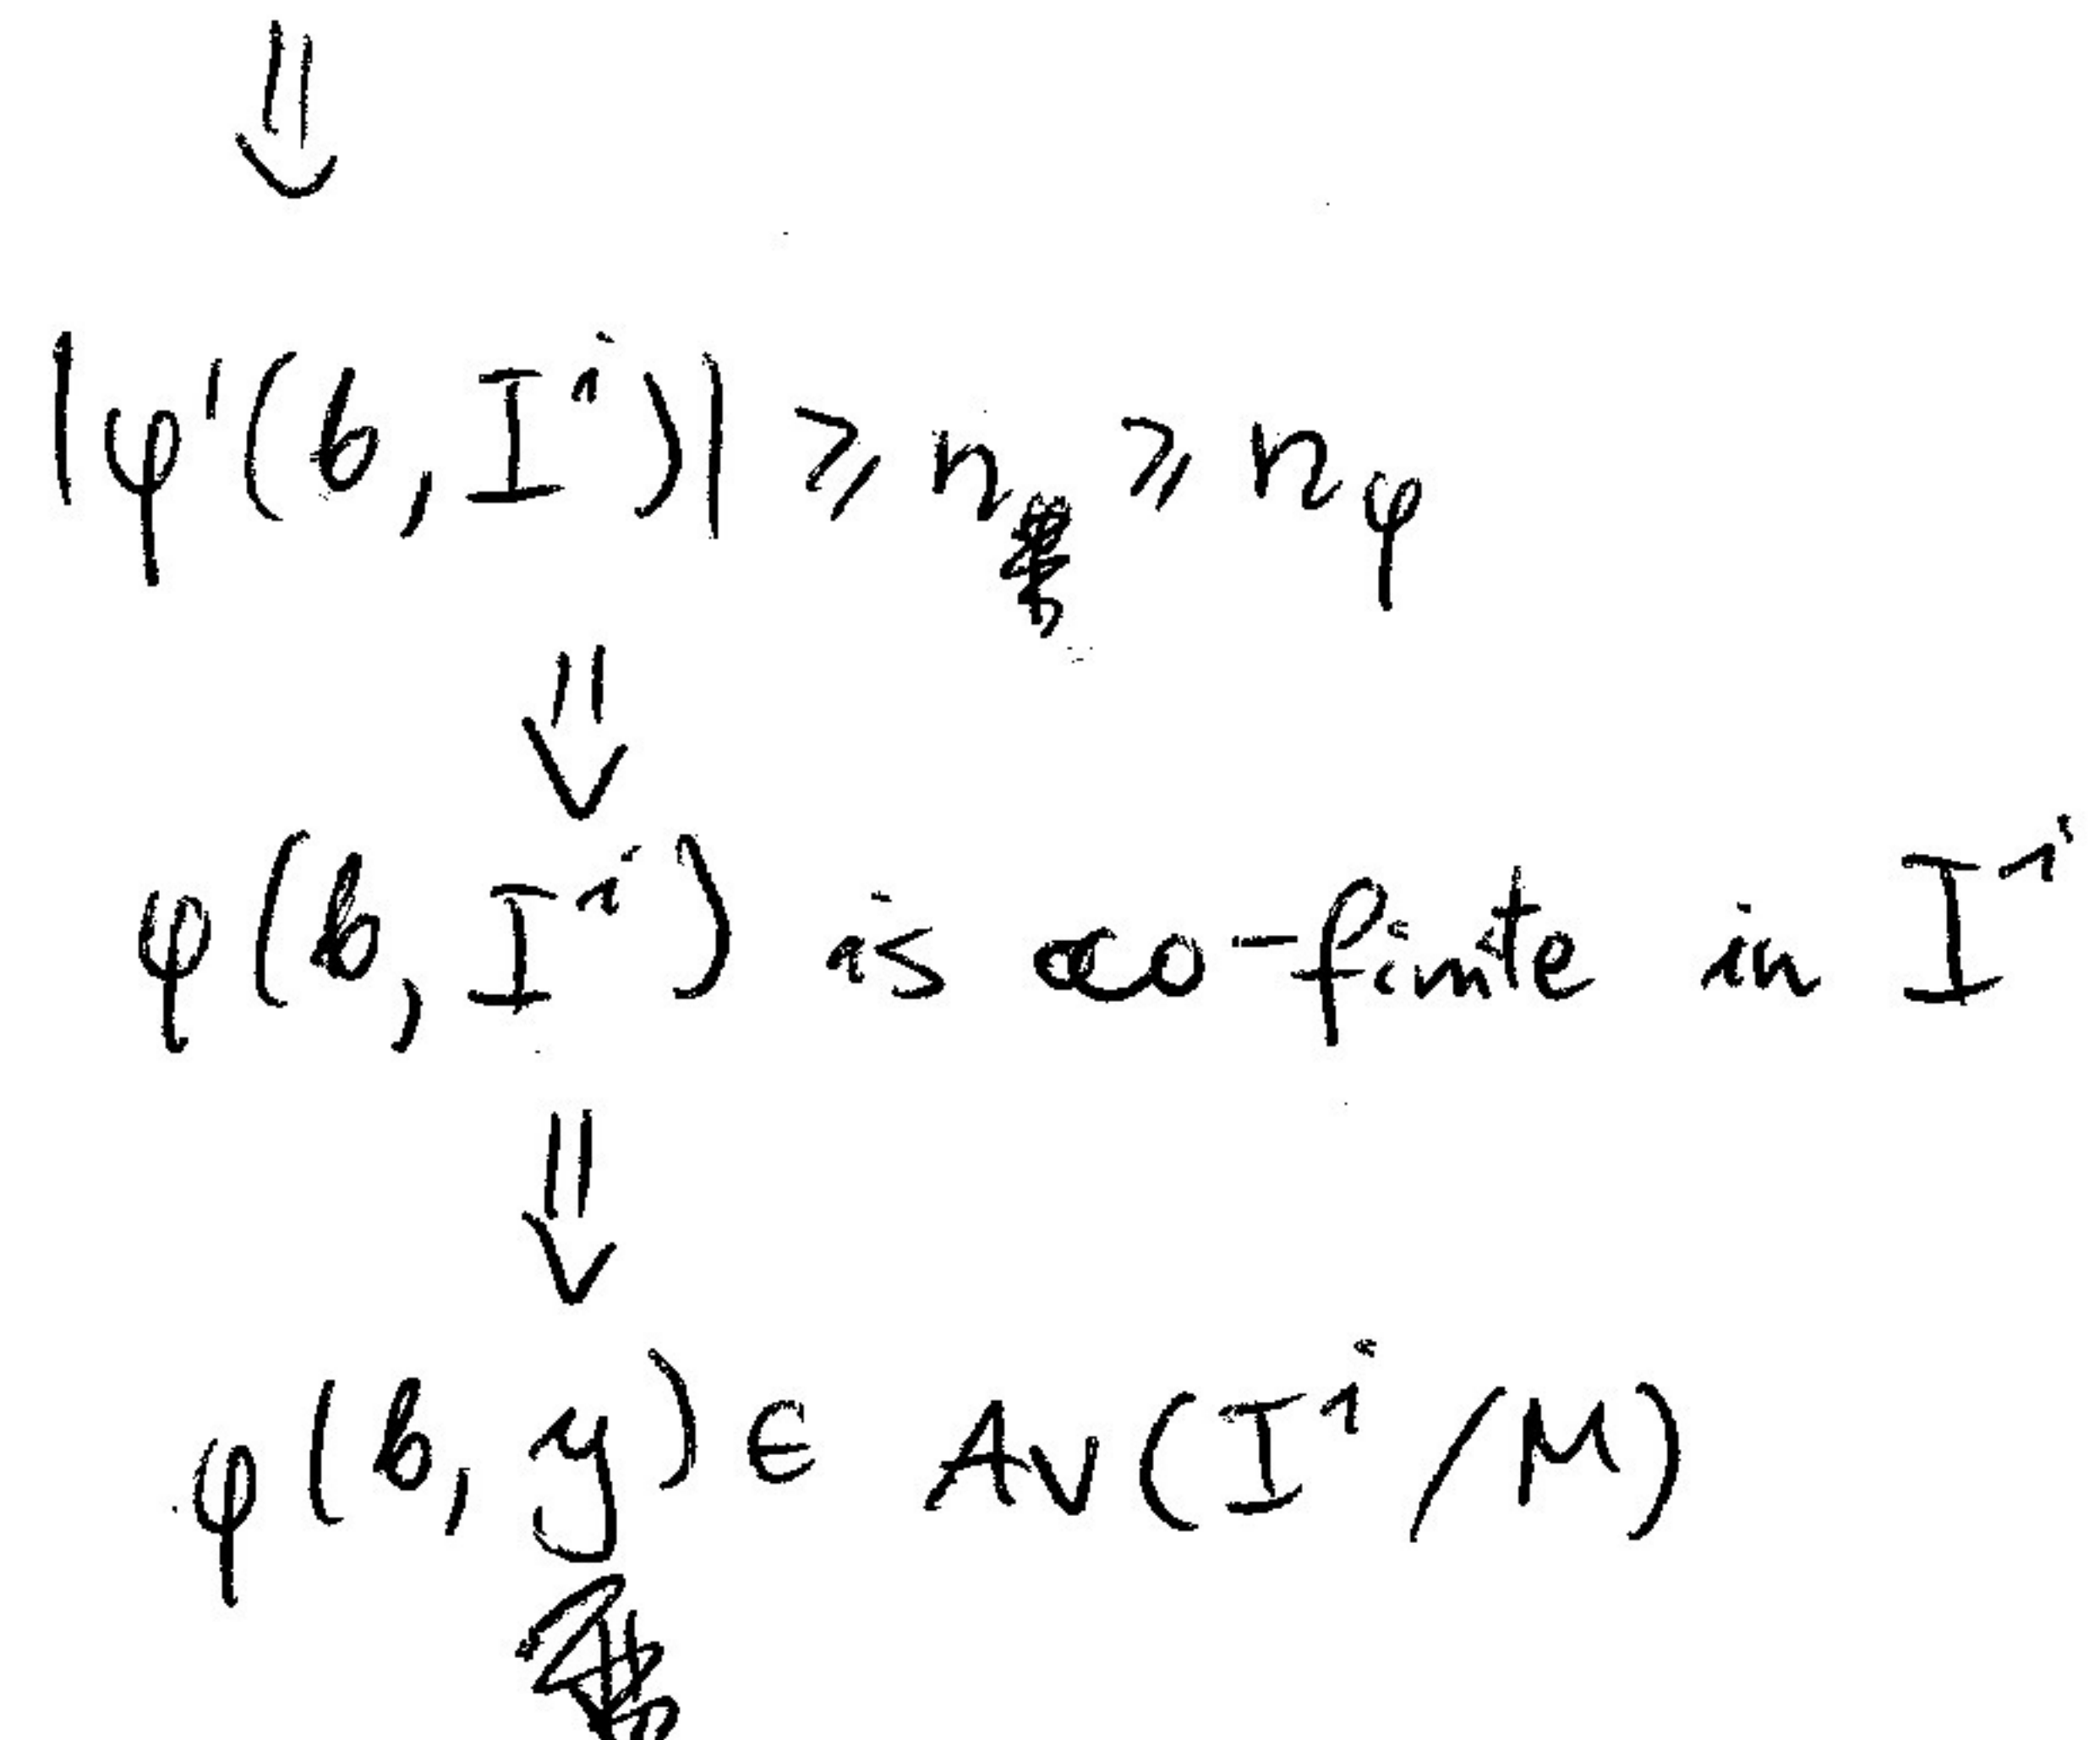 ⇓
|φ'(b, Iⁱ)| ⩾ n ⩾ n_φ
⇓
φ(b, Iⁱ) is co-finite in Iⁱ
⇓
φ(b, y) ∈ Av(Iⁱ/M)